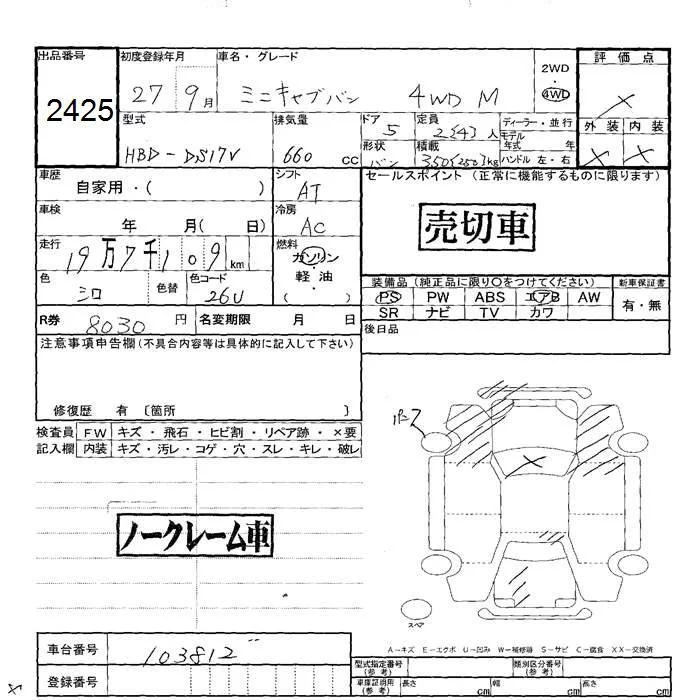 出品番号
2425
初度登録年月
27 9月
車名・グレード
ミニキャブバン 4WD M
2WD
・
4WD
評価点
×
外装 内装
× ×
型式
HBD-DS17V
排気量
660 cc
ドア
5
形状
バン
定員
2{4}人
積載
350{250}kg
ディーラー・並行
モデル年式 年
ハンドル 左・右
車歴
自家用・( )
シフト
AT
車検
年 月( 日)
冷房
AC
走行
19万7千109km
燃料
ガソリン
軽油
( )
色
シロ
色替
色コード
26U
R券
8030円
名変期限 月 日
セールスポイント (正常に機能するものに限ります)
売切車
装備品 (純正品に限り○をつけてください)
PS PW ABS エアB AW
SR ナビ TV カワ
新車保証書
有・無
後日品
注意事項申告欄(不具合内容等は具体的に記入して下さい)
修復歴 有 〔箇所 〕
検査員
記入欄
FW キズ・飛石・ヒビ割・リペア跡・×要
内装 キズ・汚レ・コゲ・穴・スレ・キレ・破レ
ノークレーム車
スペア
A-キズ E-エクボ U-凹み W-補修跡 S-サビ C-腐食 XX-交換済
車台番号
103812
登録番号
型式指定番号
(参考)
類別区分番号
(参考)
車庫証明用
(参考)
長さ cm
幅 cm
高さ cm